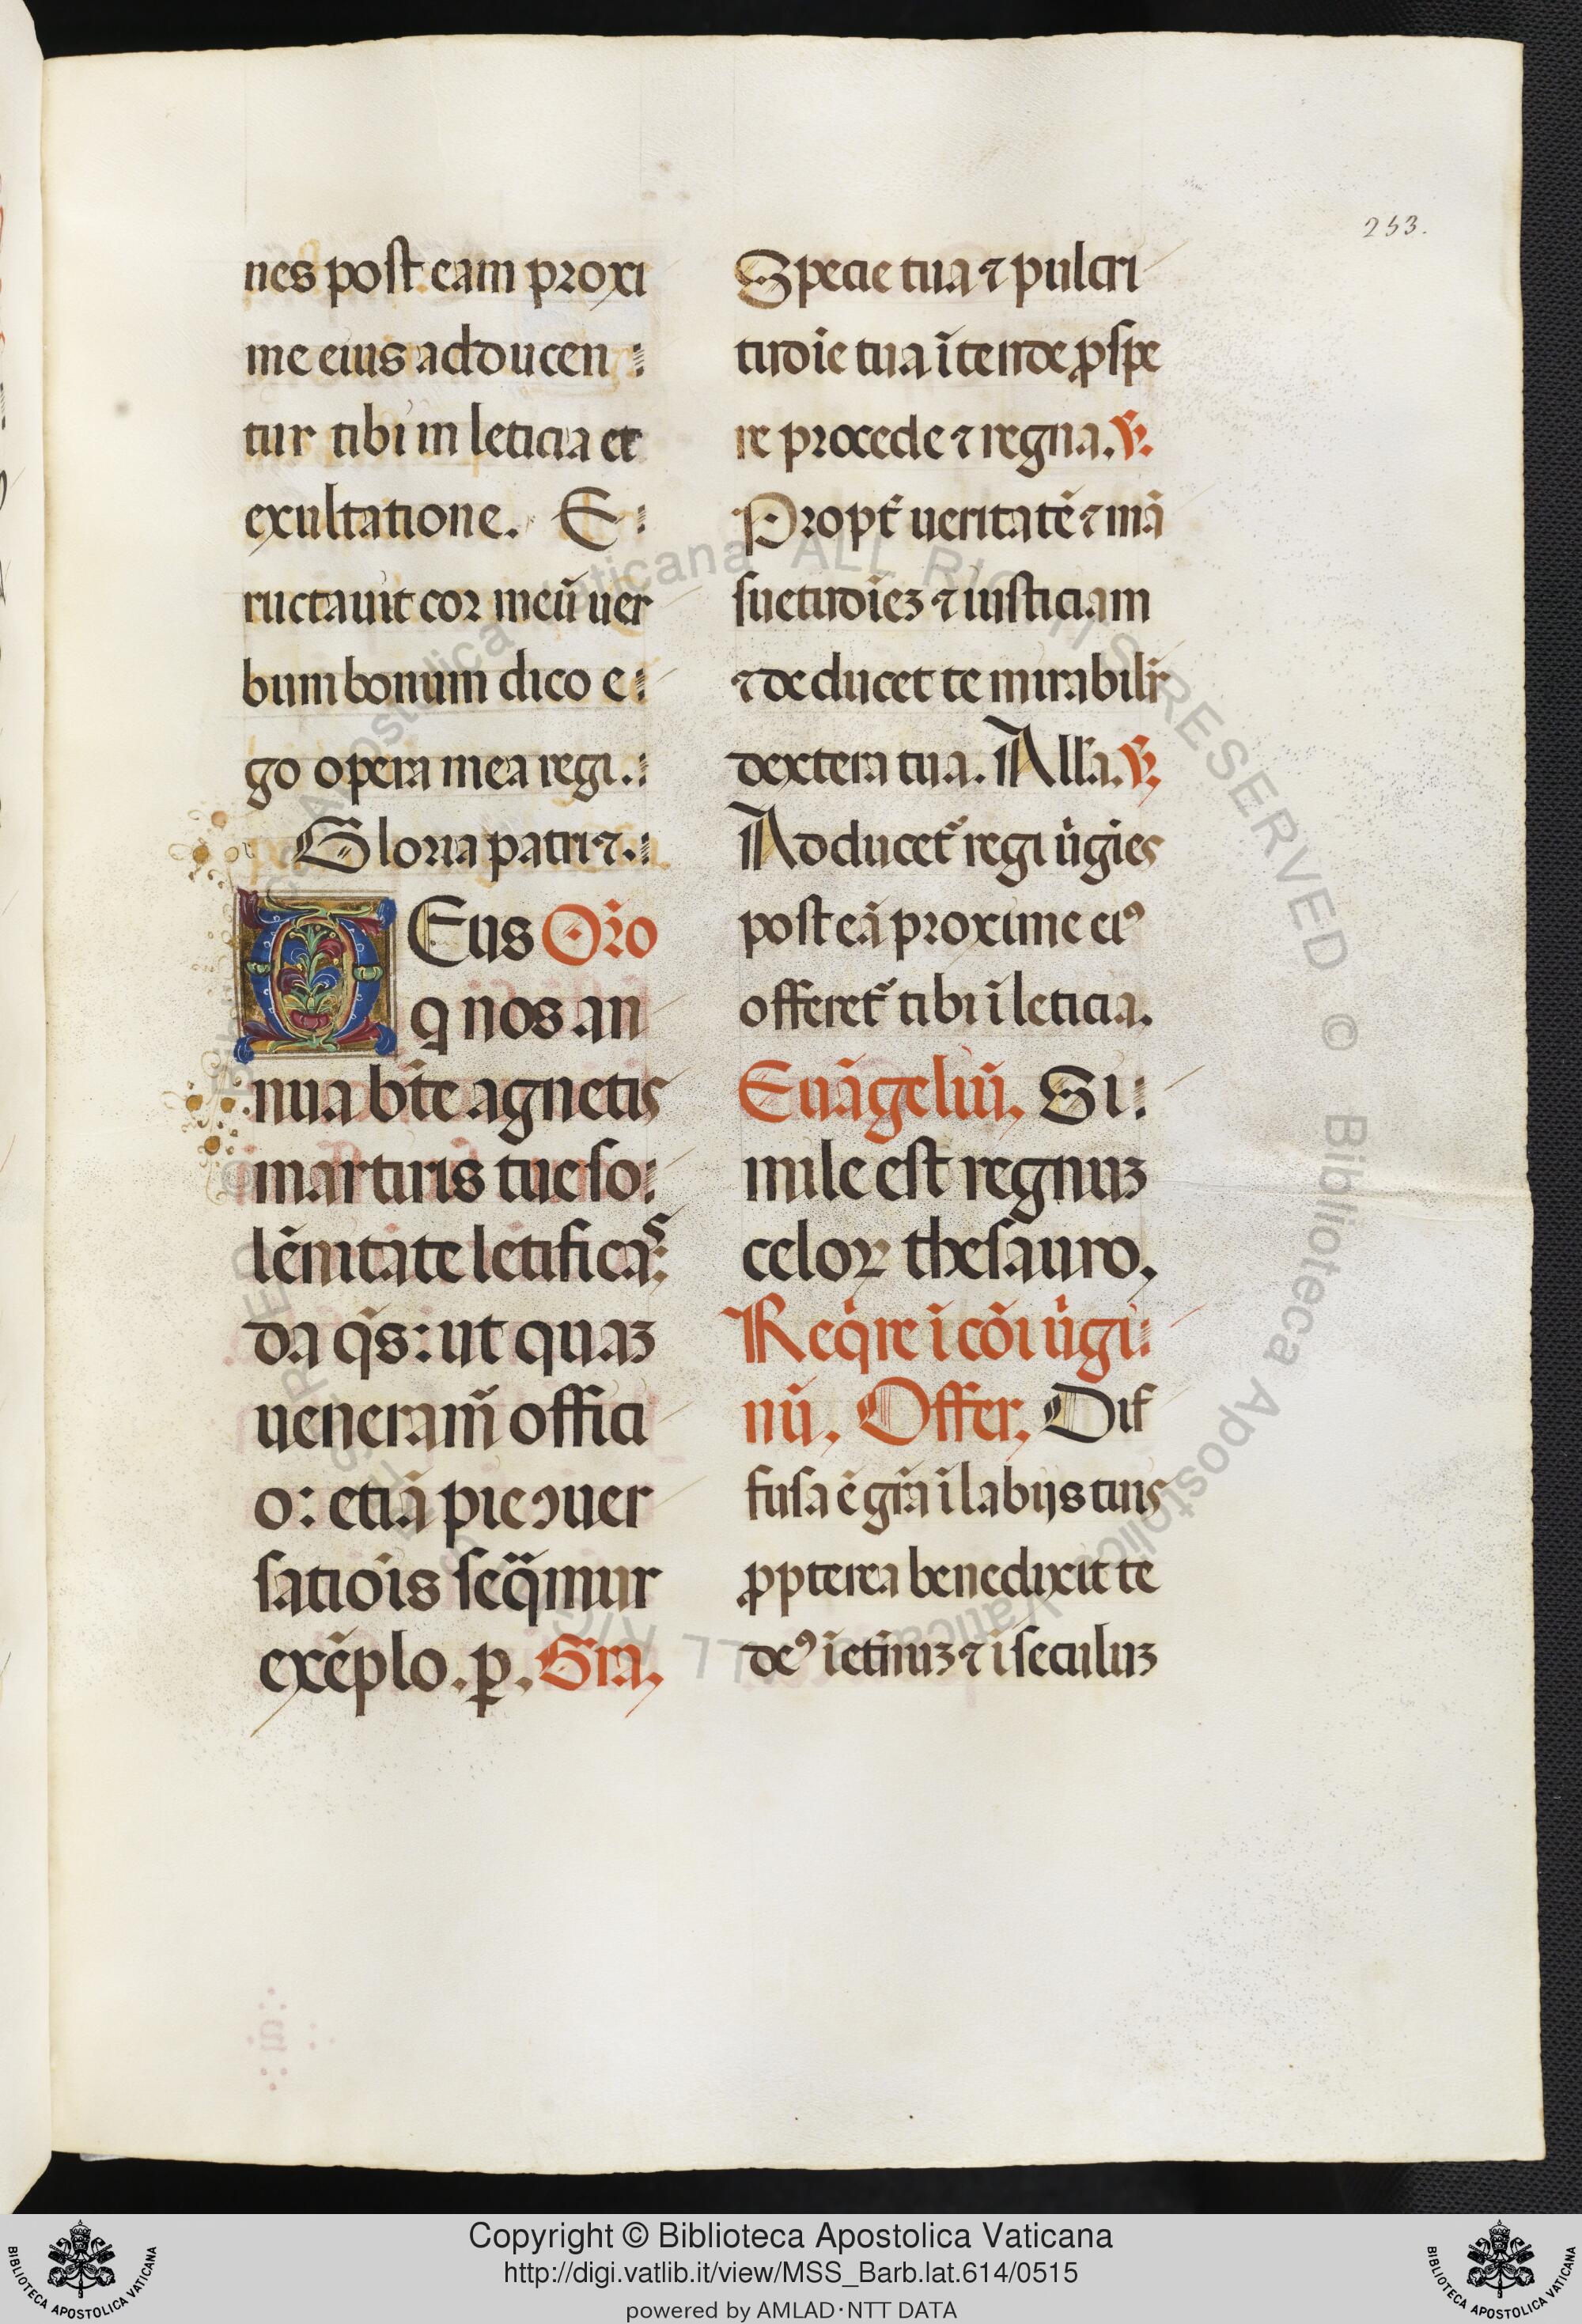 253.
nes post eam proxi
me eius adducen
tur tibi in leticia et
exultatione. E
ructauit cor meū uer
bum bonum dico e
go opera mea regi.
Gloria patri ⁊.
DEus Oró
q nos an
nua bt̄e agnetis
martiris tue so
lēnitate letificas
da qs̄: ut quaȝ
ueneram̄ offici
o: etiā pie ꝯuer
satiōis seq̄mur
exēplo. p. Gra.
Specie tua ⁊ pulcri
tudīe tua ītende ꝓspe
re procede ⁊ regna. V̄.
Propt̄ ueritatē ⁊ mā
suetudīeȝ ⁊ iusticiam
⁊ deducet te mirabilr̄
dextera tua. All̄a. V̄.
Adducet᷑ regi ūgīes
post eā proxime eiꝰ
offeret᷑ tibi ī leticia.
Euāgeliū. Si
mile est regnuȝ
celoꝝ thesauro.
Reqͥre ī cōi ūgi
nū. Offer. Dif
fusa ē grā ī labijs tuis
ꝓpterea benedixit te
deꝰ ī etnuȝ ⁊ ī seculuȝ
© Biblioteca Apostolica Vaticana ALL RIGHTS RESERVED
Copyright © Biblioteca Apostolica Vaticana
http://digi.vatlib.it/view/MSS_Barb.lat.614/0515
powered by AMLAD·NTT DATA
BIBLIOTECA APOSTOLICA VATICANA
BIBLIOTECA APOSTOLICA VATICANA